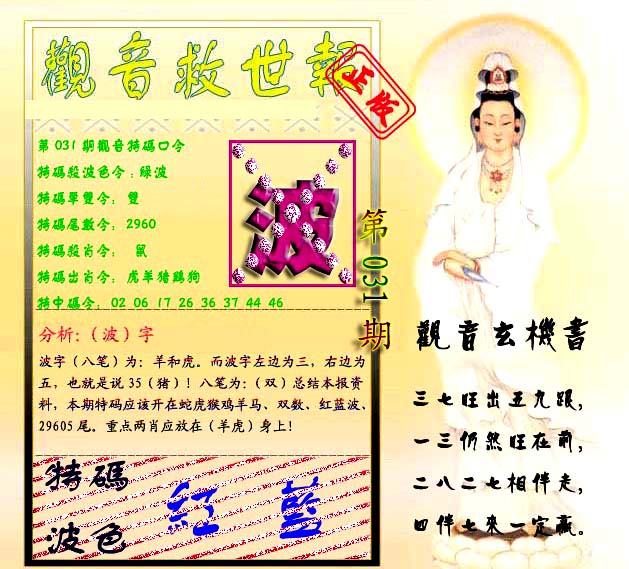 觀音救世報
正版
第031期觀音特碼口令
特碼殺波色令:綠波
特碼單雙令: 雙
特碼尾數令: 2960
特碼殺肖令: 鼠
特碼出肖令: 虎羊猪鷄狗
特中碼令: 02 06 17 26 36 37 44 46
波
第031期
分析:（波）字
波字（八笔）为：羊和虎。而波字左边为三，右边为
五，也就是说 35（猪）！八笔为：（双）总结本报资
料，本期特码应该开在蛇虎猴鸡羊马、双数、红蓝波、
29605 尾。重点两肖应放在（羊虎）身上！
特碼
波色
紅 藍
觀音玄機書
三七旺出五九跟，
一三仍然旺在前，
二八二七相伴走，
四伴七來一定贏。